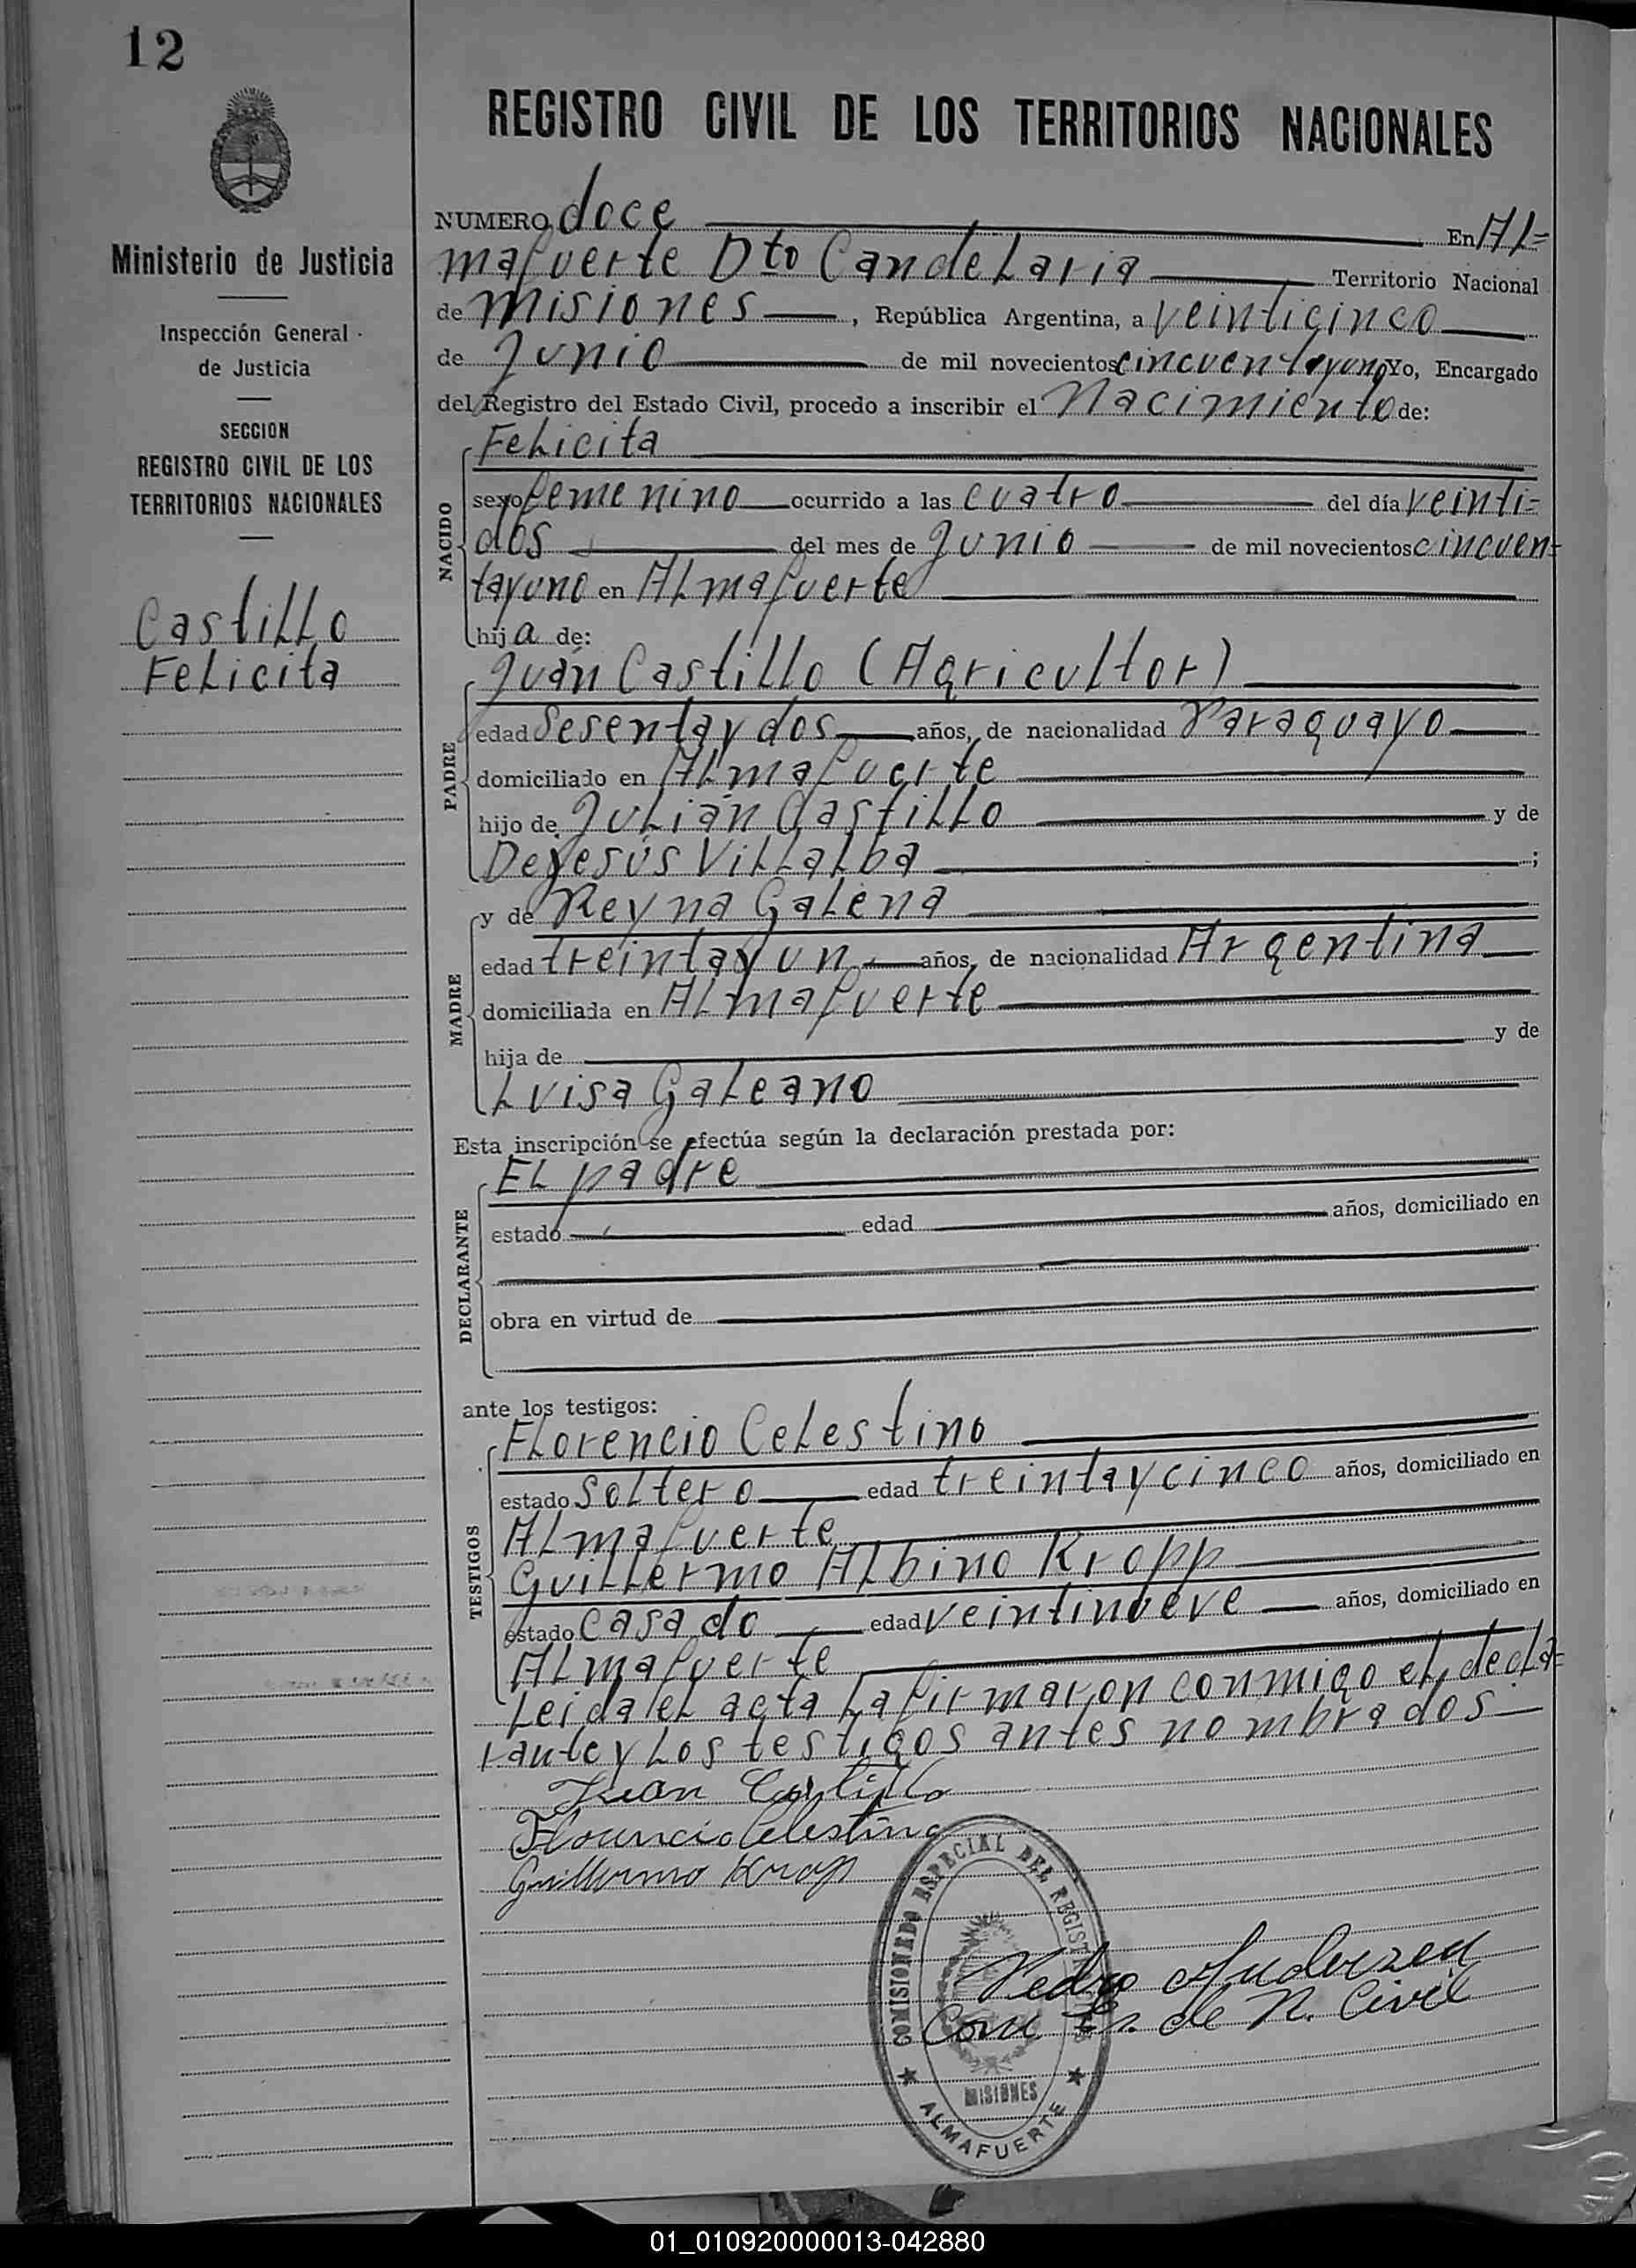 12
Ministerio de Justicia
Inspección General
de Justicia
SECCION
REGISTRO CIVIL DE LOS
TERRITORIOS NACIONALES
Castillo
Felicita
REGISTRO CIVIL DE LOS TERRITORIOS NACIONALES
NUMERO doce En Al=
mafuerte Dto Candelaria Territorio Nacional
de misiones, República Argentina, a veinticinco
de Junio de mil novecientos cincuentayuno Yo, Encargado
del Registro del Estado Civil, procedo a inscribir el Nacimiento de:
NACIDO
Felicita
sexo femenino ocurrido a las cuatro del día veinti=
dos del mes de Junio de mil novecientos cincuen=
tayuno en Almafuerte
hija de:
PADRE
Juán Castillo (Agricultor)
edad Sesentay dos años, de nacionalidad Paraguayo
domiciliado en Almafuerte
hijo de Julián Castillo y de
Dejesús Villalba ;
MADRE
y de Reyna Galena
edad treintay un años, de nacionalidad Argentina
domiciliada en Almafuerte
hija de y de
Luisa Galeano
Esta inscripción se efectúa según la declaración prestada por:
DECLARANTE
El padre
estado edad años, domiciliado en
obra en virtud de
ante los testigos:
TESTIGOS
Florencio Celestino
estado Soltero edad treintaycinco años, domiciliado en
Almafuerte
Guillermo Albino Kropp
estado Casado edad veintinueve años, domiciliado en
Almafuerte
Leida el acta la firmaron conmigo el decla=
rante y los testigos antes nombrados
Juan Castillo
Florencio Celestino
Guillermo Kropp
COMISIONADO ESPECIAL DEL REGIST
MISIONES
ALMAFUERTE
Pedro Anderzen
Com Es. de R. Civil
01_010920000013-042880